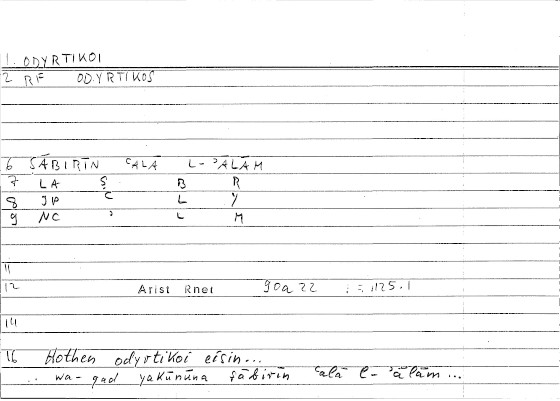 1. ODYRTIKOI
2 RF ODYRTIKOS
6 ṢĀBIRĪN ʿALĀ L-ʾĀLĀM
7 LA Ṣ B R
8 JP ʿ L Y
9 NC ʾ L M
11
12 Arist Rhet 90a 22 125.1
14
16 Hothen odyrtikoi eisin...
.. wa-qad yakūnūna ṣābirīn ʿalā l-ʾālām ...